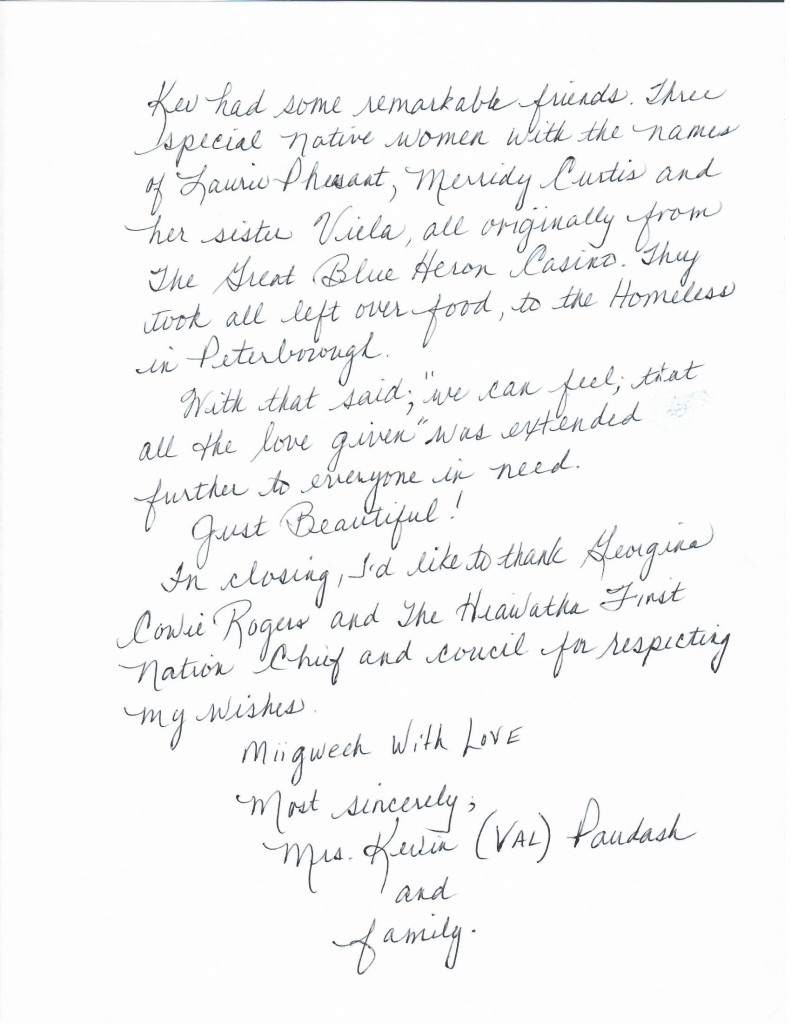 Kev had some remarkable friends. Three
special native women with the names
of Laurie Phesant, Merridy Curtis and
her sister Viela, all originally from
The Great Blue Heron Casino. They
took all left over food, to the Homeless
in Peterborough.
With that said; "we can feel; that
all the love given" was extended
further to everyone in need.
Just Beautiful!
In closing, I'd like to thank Georgina
Cowie Rogers and The Hiawatha First
Nation Chief and coucil for respecting
my wishes.
Miigwech With LOVE
Most sincerely;
Mrs. Kevin (VAL) Paudash
and
family.